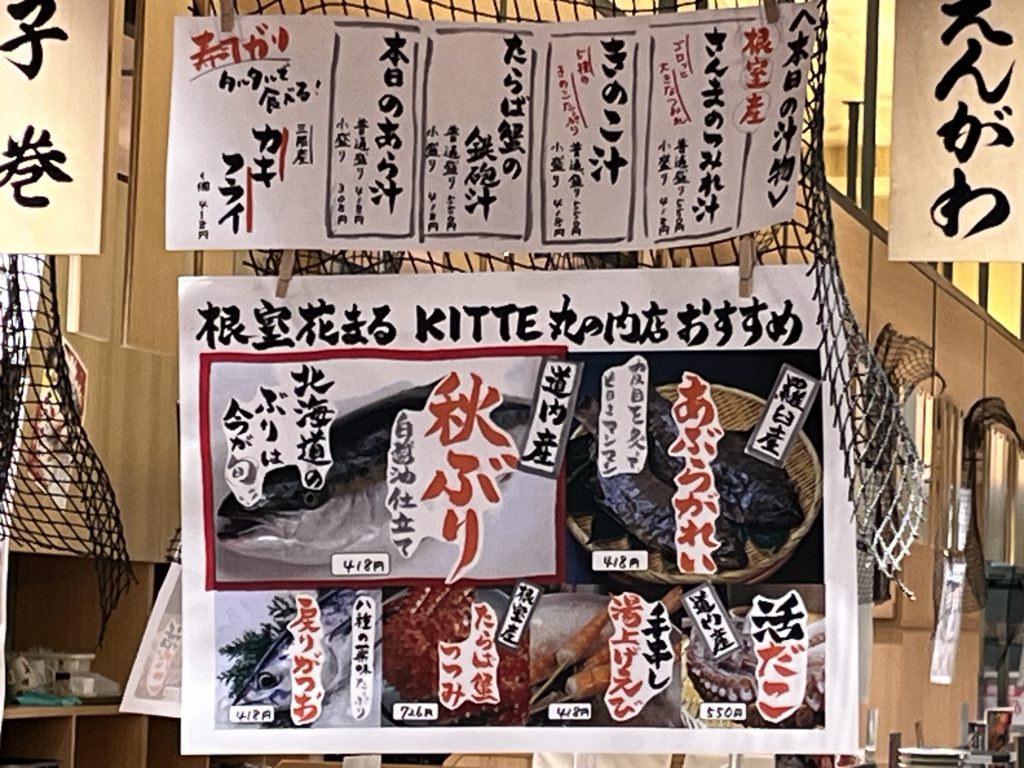 子巻
えんがわ
〈本日の汁物〉
根室産
さんまのつみれ汁
ゴロッと
大きなつみれ
普通盛り 550円
小盛り 418円
きのこ汁
5種の
きのこたっぷり
普通盛り 550円
小盛り 418円
たらば蟹の
鉄砲汁
普通盛り 550円
小盛り 418円
本日のあら汁
普通盛り 418円
小盛り 308円
寿司ガリ
タルタルで
食べる!
三陸産
カキ
フライ
1個 418円
根室花まる KITTE丸の内店おすすめ
道内産
秋ぶり
白醤油仕立て
北海道の
ぶりは
今が旬!!
418円
羅臼産
あぶらがれい
皮目を炙って
418円
八種の薬味たっぷり
戻りがつお
418円
根室産
たらば蟹
つつみ
726円
手串し
湯上げえび
418円
道内産
活だこ
550円